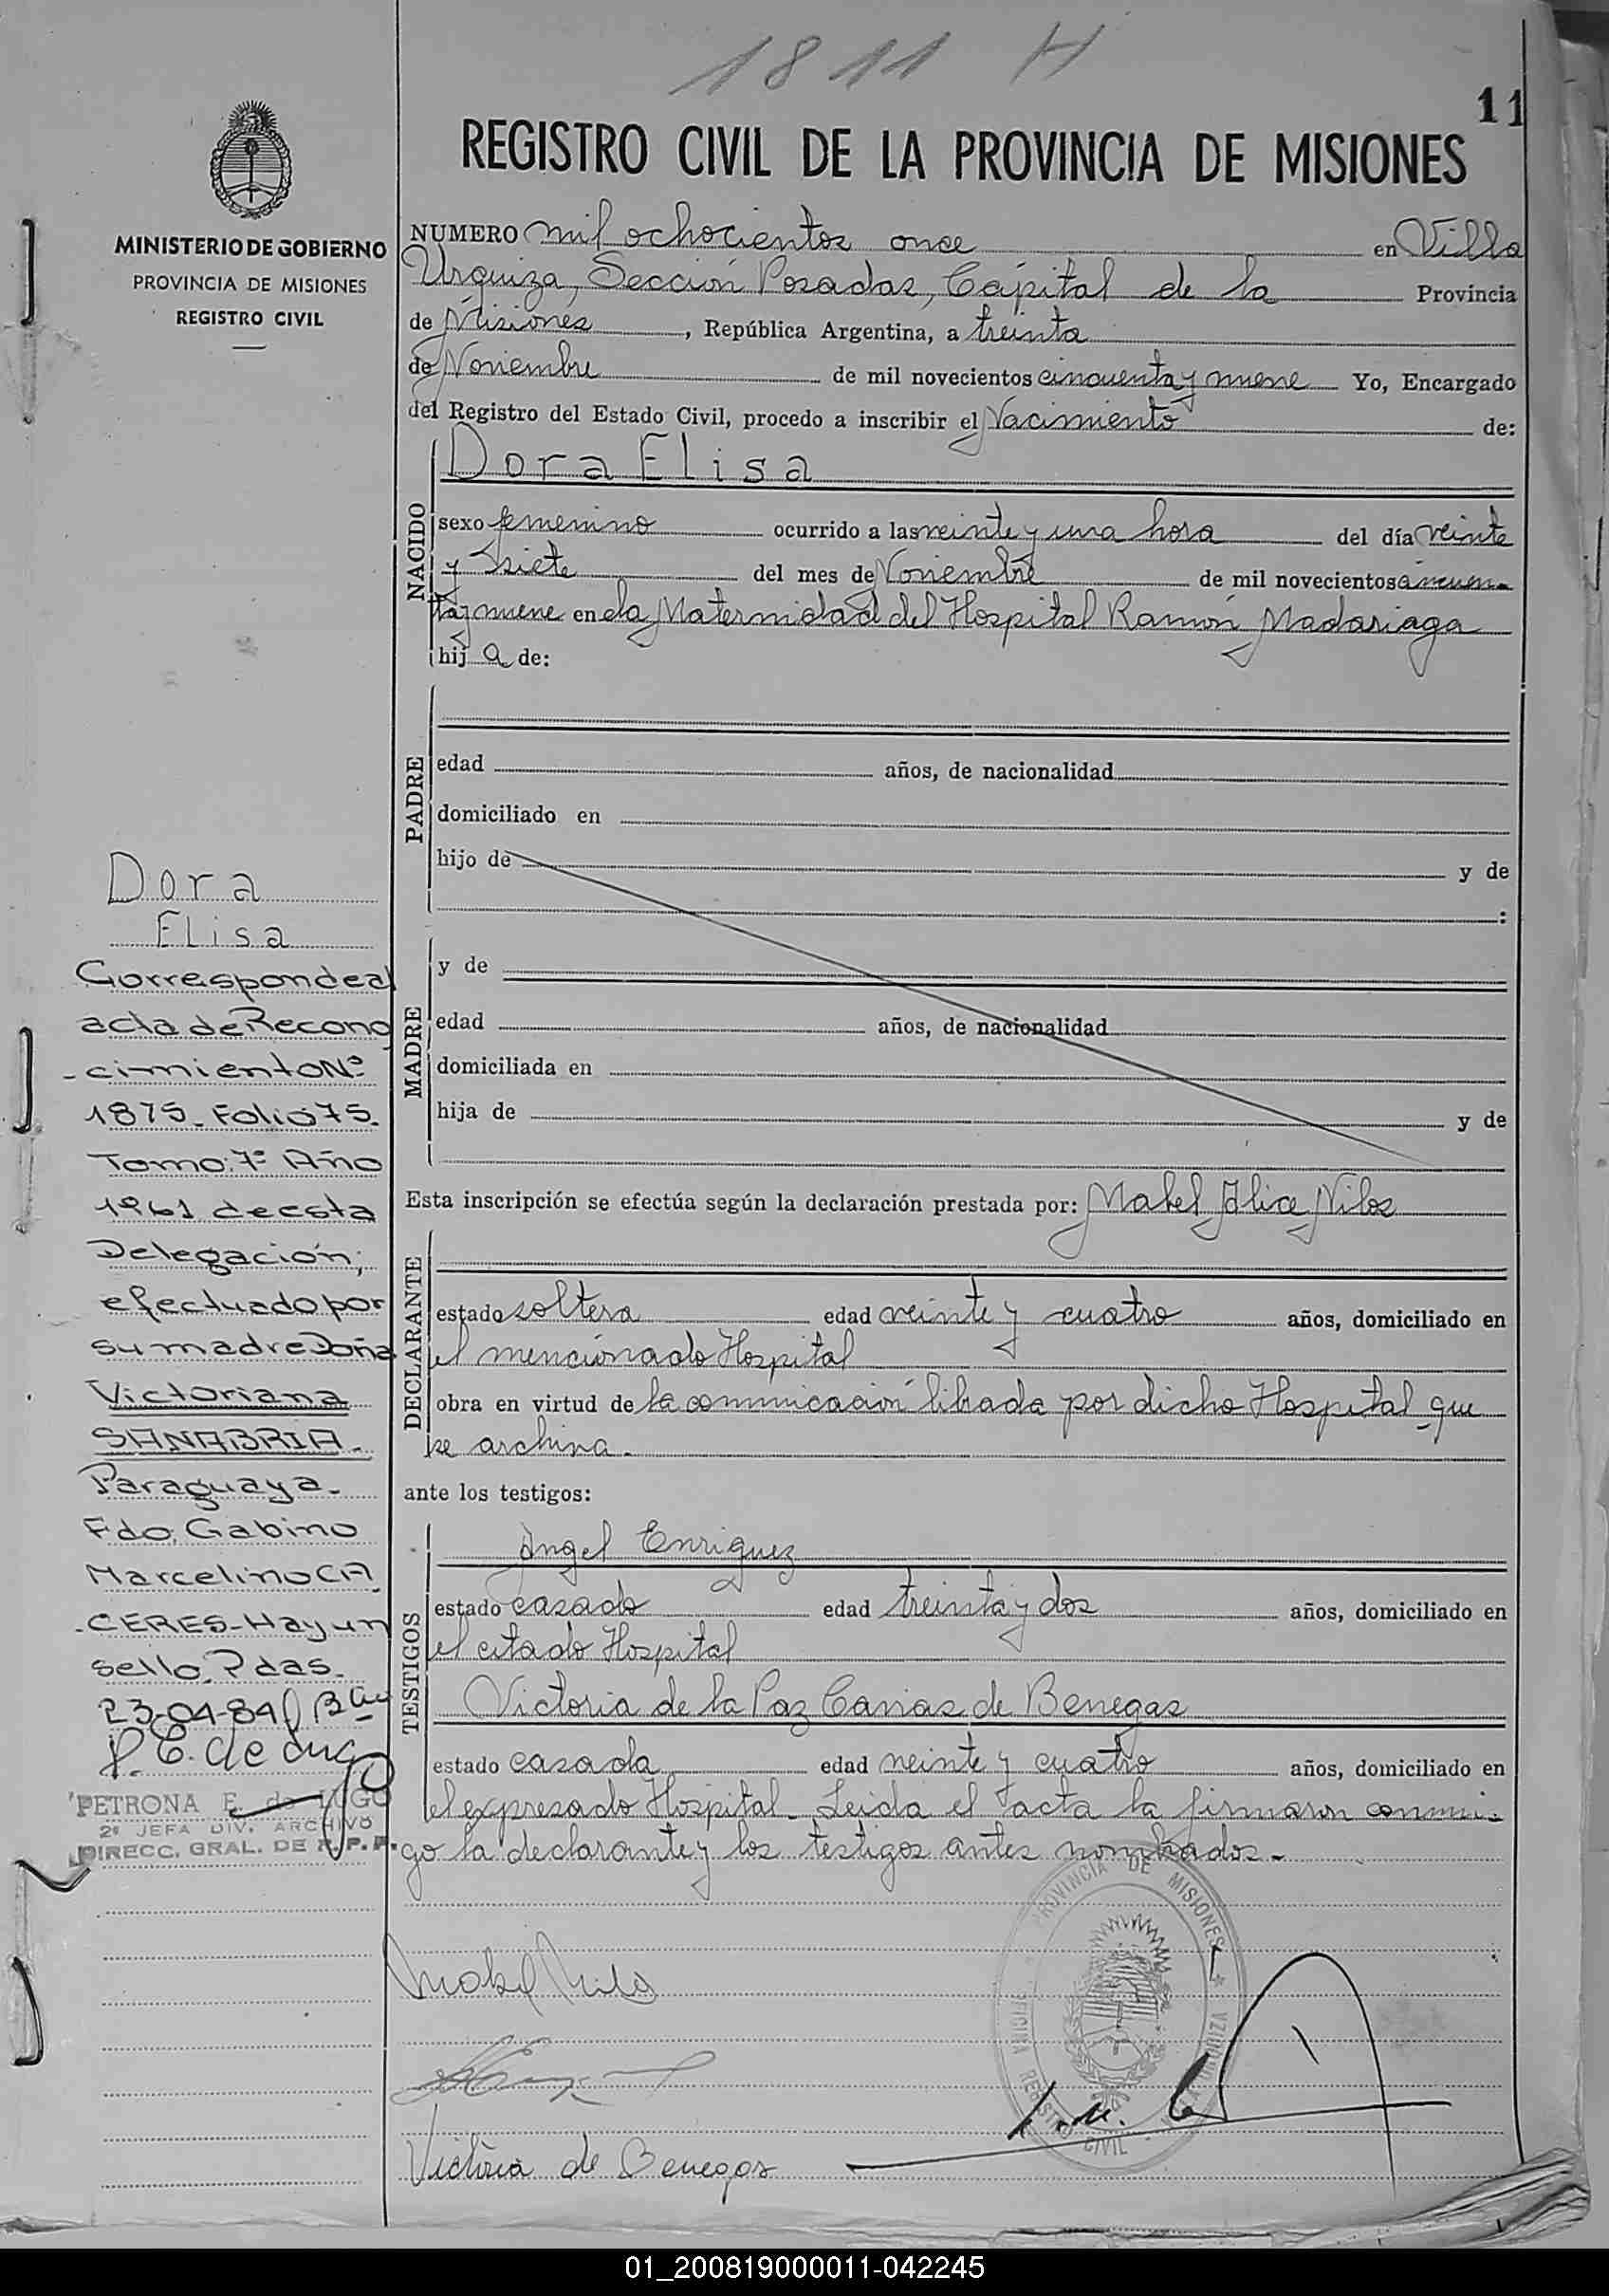 1811 H
11
REGISTRO CIVIL DE LA PROVINCIA DE MISIONES
MINISTERIO DE GOBIERNO
PROVINCIA DE MISIONES
REGISTRO CIVIL
NUMERO mil ochocientos once en Villa
Urquiza, Sección Posadas, Capital de la Provincia
de Misiones, República Argentina, a treinta
de Noviembre de mil novecientos cincuenta y nueve Yo, Encargado
del Registro del Estado Civil, procedo a inscribir el Nacimiento de:
NACIDO
Dora Elisa
sexo femenino ocurrido a las veinte y una hora del día veinte
y siete del mes de Noviembre de mil novecientos cincuen
ta y nueve en la Maternidad del Hospital Ramón Madariaga
hij a de:
PADRE
edad años, de nacionalidad
domiciliado en
hijo de y de
:
MADRE
y de
edad años, de nacionalidad
domiciliada en
hija de y de
Esta inscripción se efectúa según la declaración prestada por: Mabel Alice Nilos
DECLARANTE
estado soltera edad veinte y cuatro años, domiciliado en
el mencionado Hospital
obra en virtud de la comunicación librada por dicho Hospital que
se archiva.
ante los testigos:
TESTIGOS
Angel Enriquez
estado casado edad treinta y dos años, domiciliado en
el citado Hospital
Victoria de la Paz Canias de Benegas
estado casada edad veinte y cuatro años, domiciliado en
el expresado Hospital. Leida el acta la firmaron conmi-
go la declarante y los testigos antes nombrados.-
Dora
Elisa
Corresponde al
acta de Recono
-cimiento Nº
1875 Folio 75.
Tomo: 7º Año
1961 de esta
Delegación;
efectuado por
su madre Doña
Victoriana
SANABRIA.
Paraguaya.
Fdo. Gabino
Marcelino CA
-CERES- Hay un
sello. Pdas.
23-04-84
P. E. de Lugo
PETRONA E. de LUGO
2º JEFA DIV. ARCHIVO
DIRECC. GRAL. DE R. P. P.
Mabel Nilos
Victoria de Benegas
PROVINCIA DE MISIONES
OFICINA REGISTRO CIVIL
VILLA URQUIZA
01_200819000011-042245